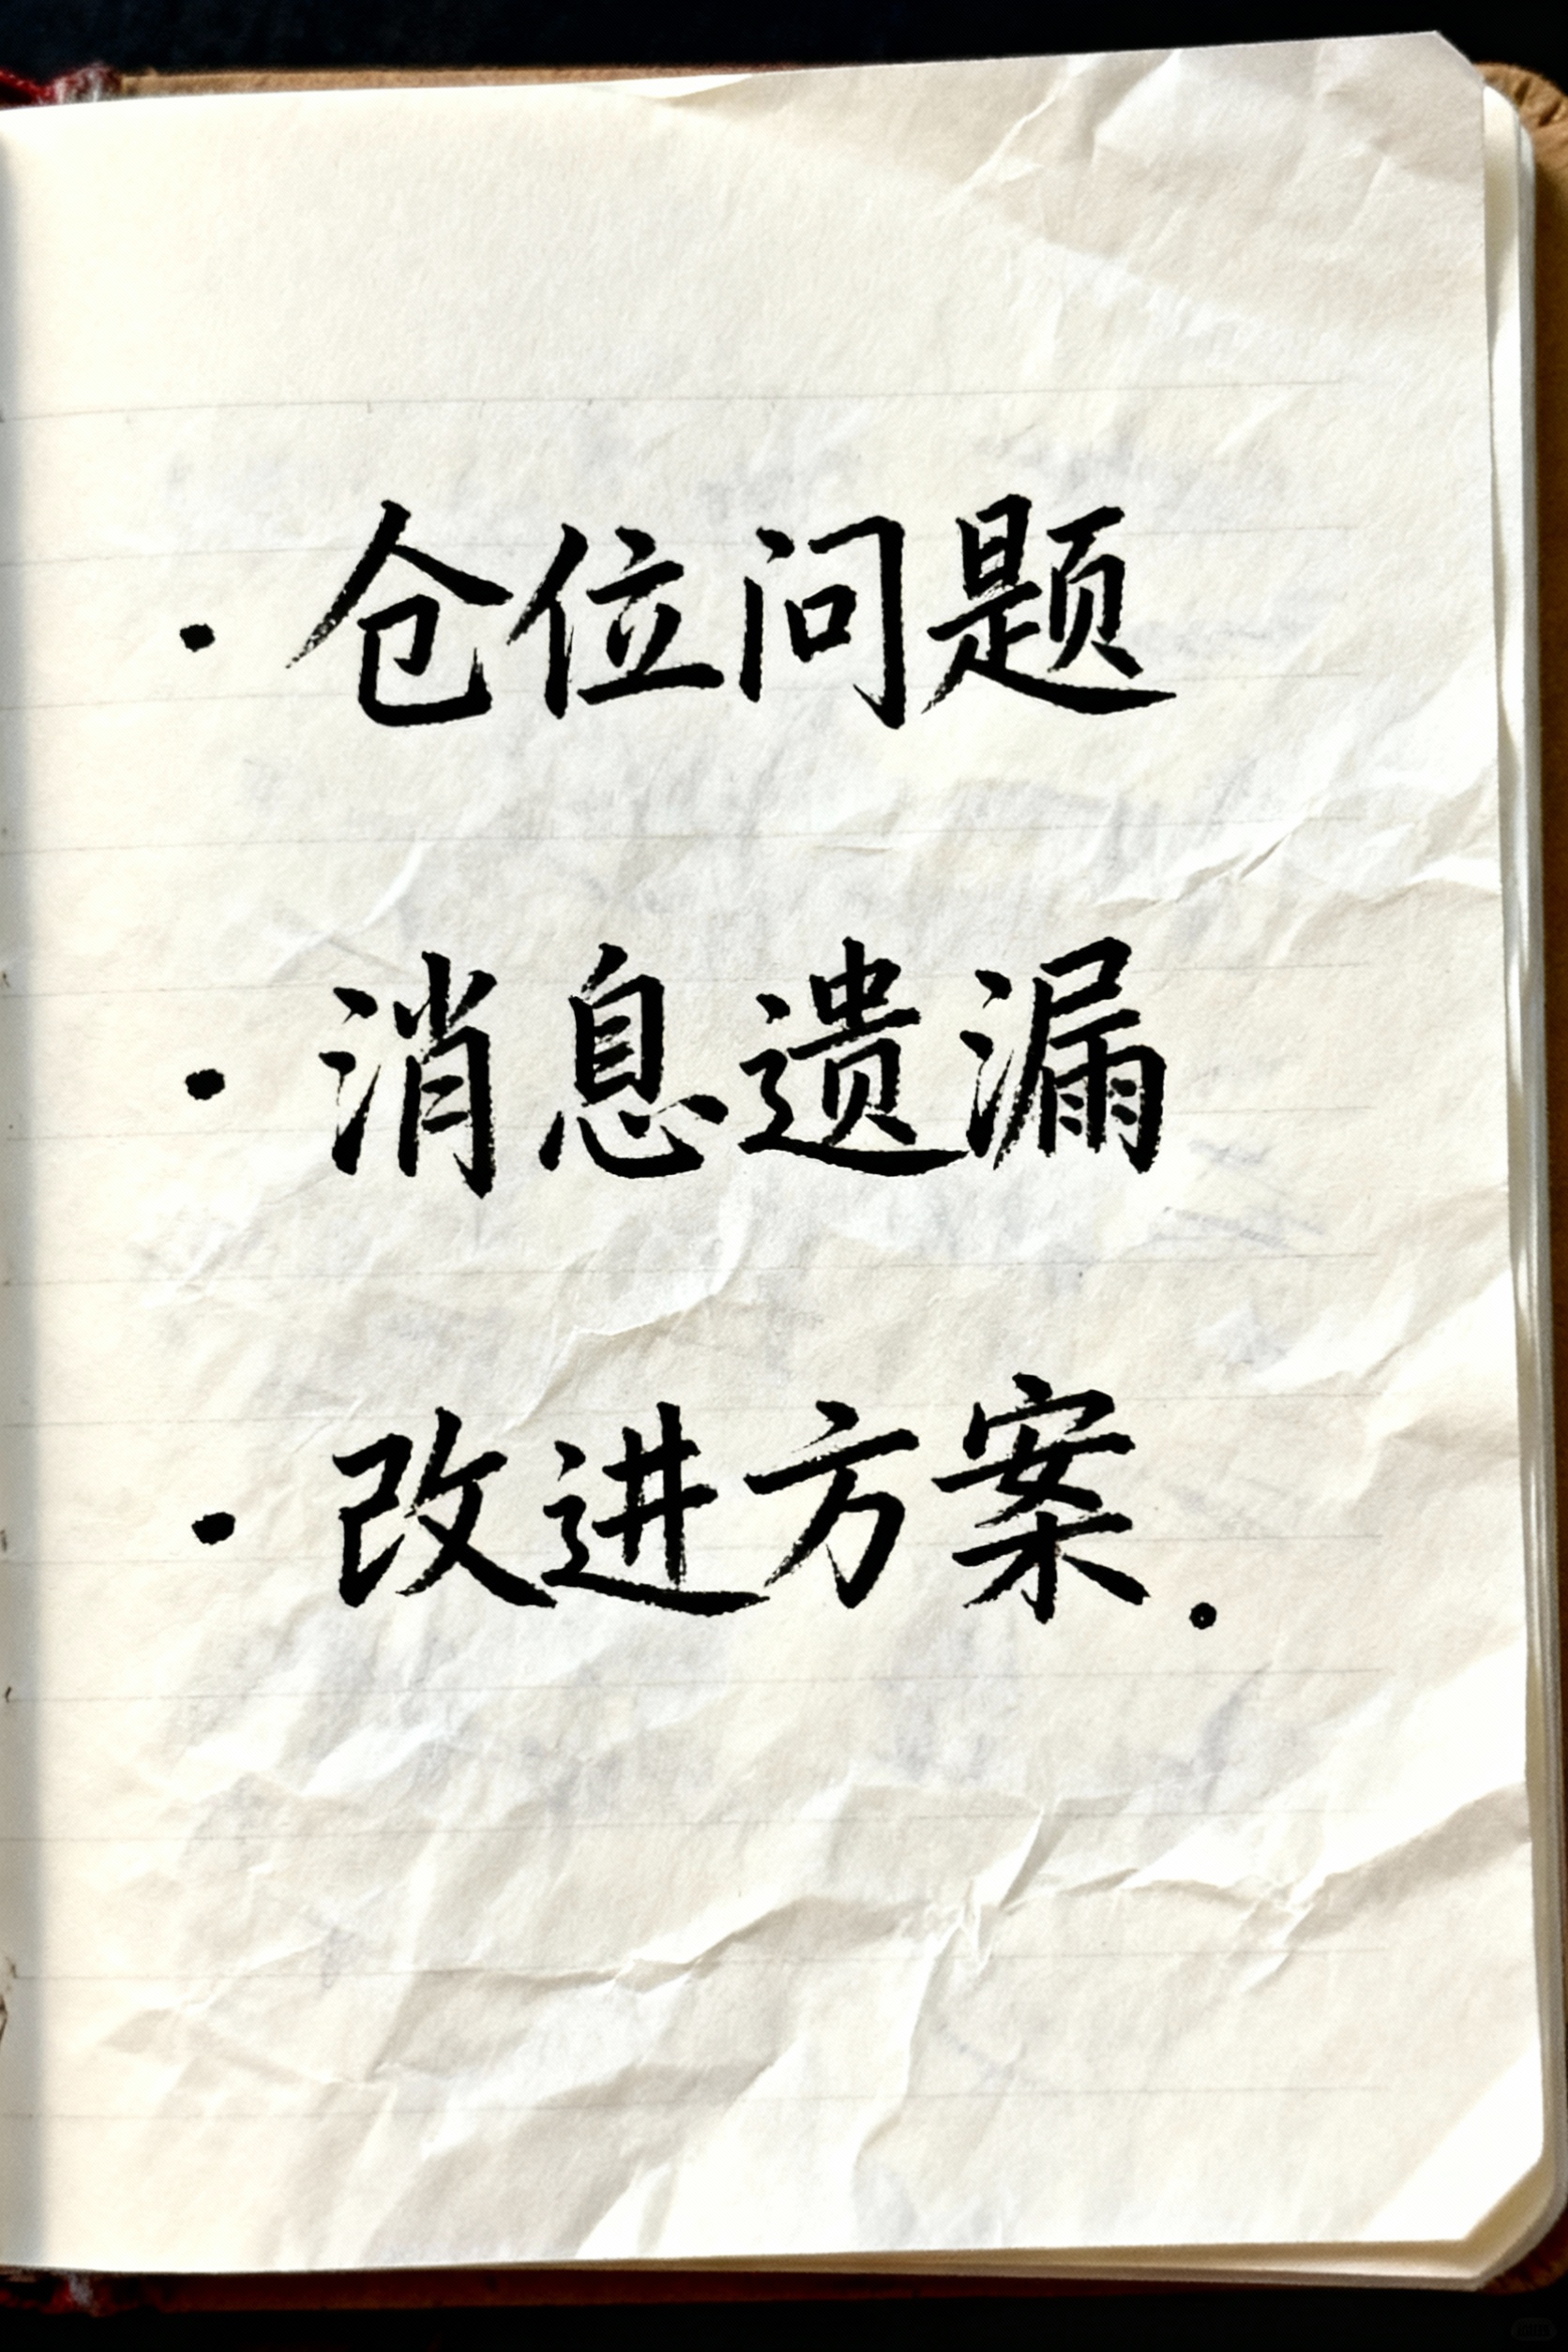 · 仓位问题
· 消息遗漏
· 改进方案.